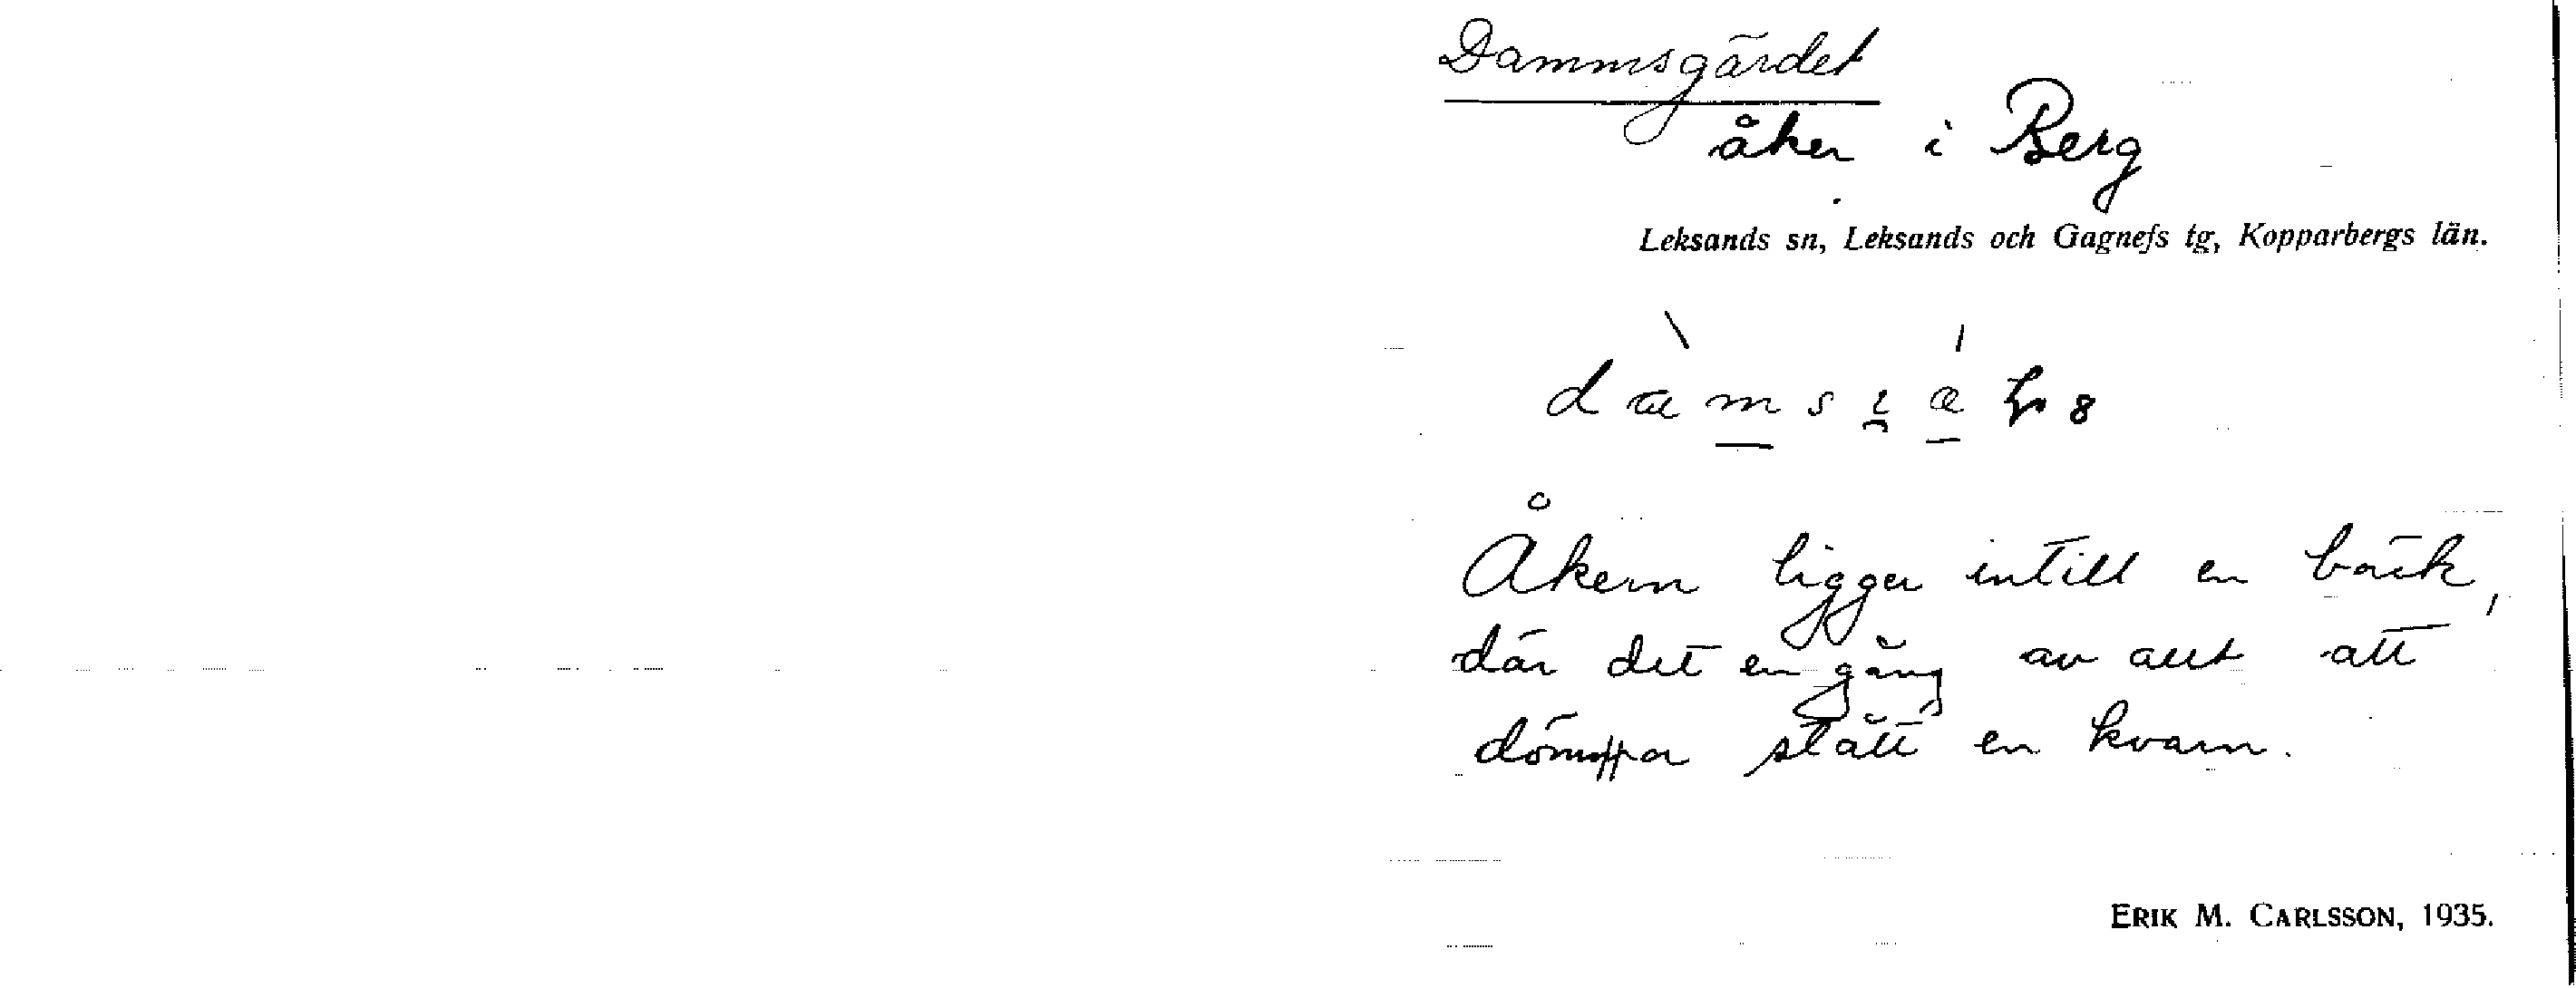 Dammsgärdet
åker i Berg
Leksands sn, Leksands och Gagnefs tg, Kopparbergs län.
Åkern ligger intill en bäck,
där det en gång av allt att
dömma stått en kvarn.
ERIK M. CARLSSON, 1935.